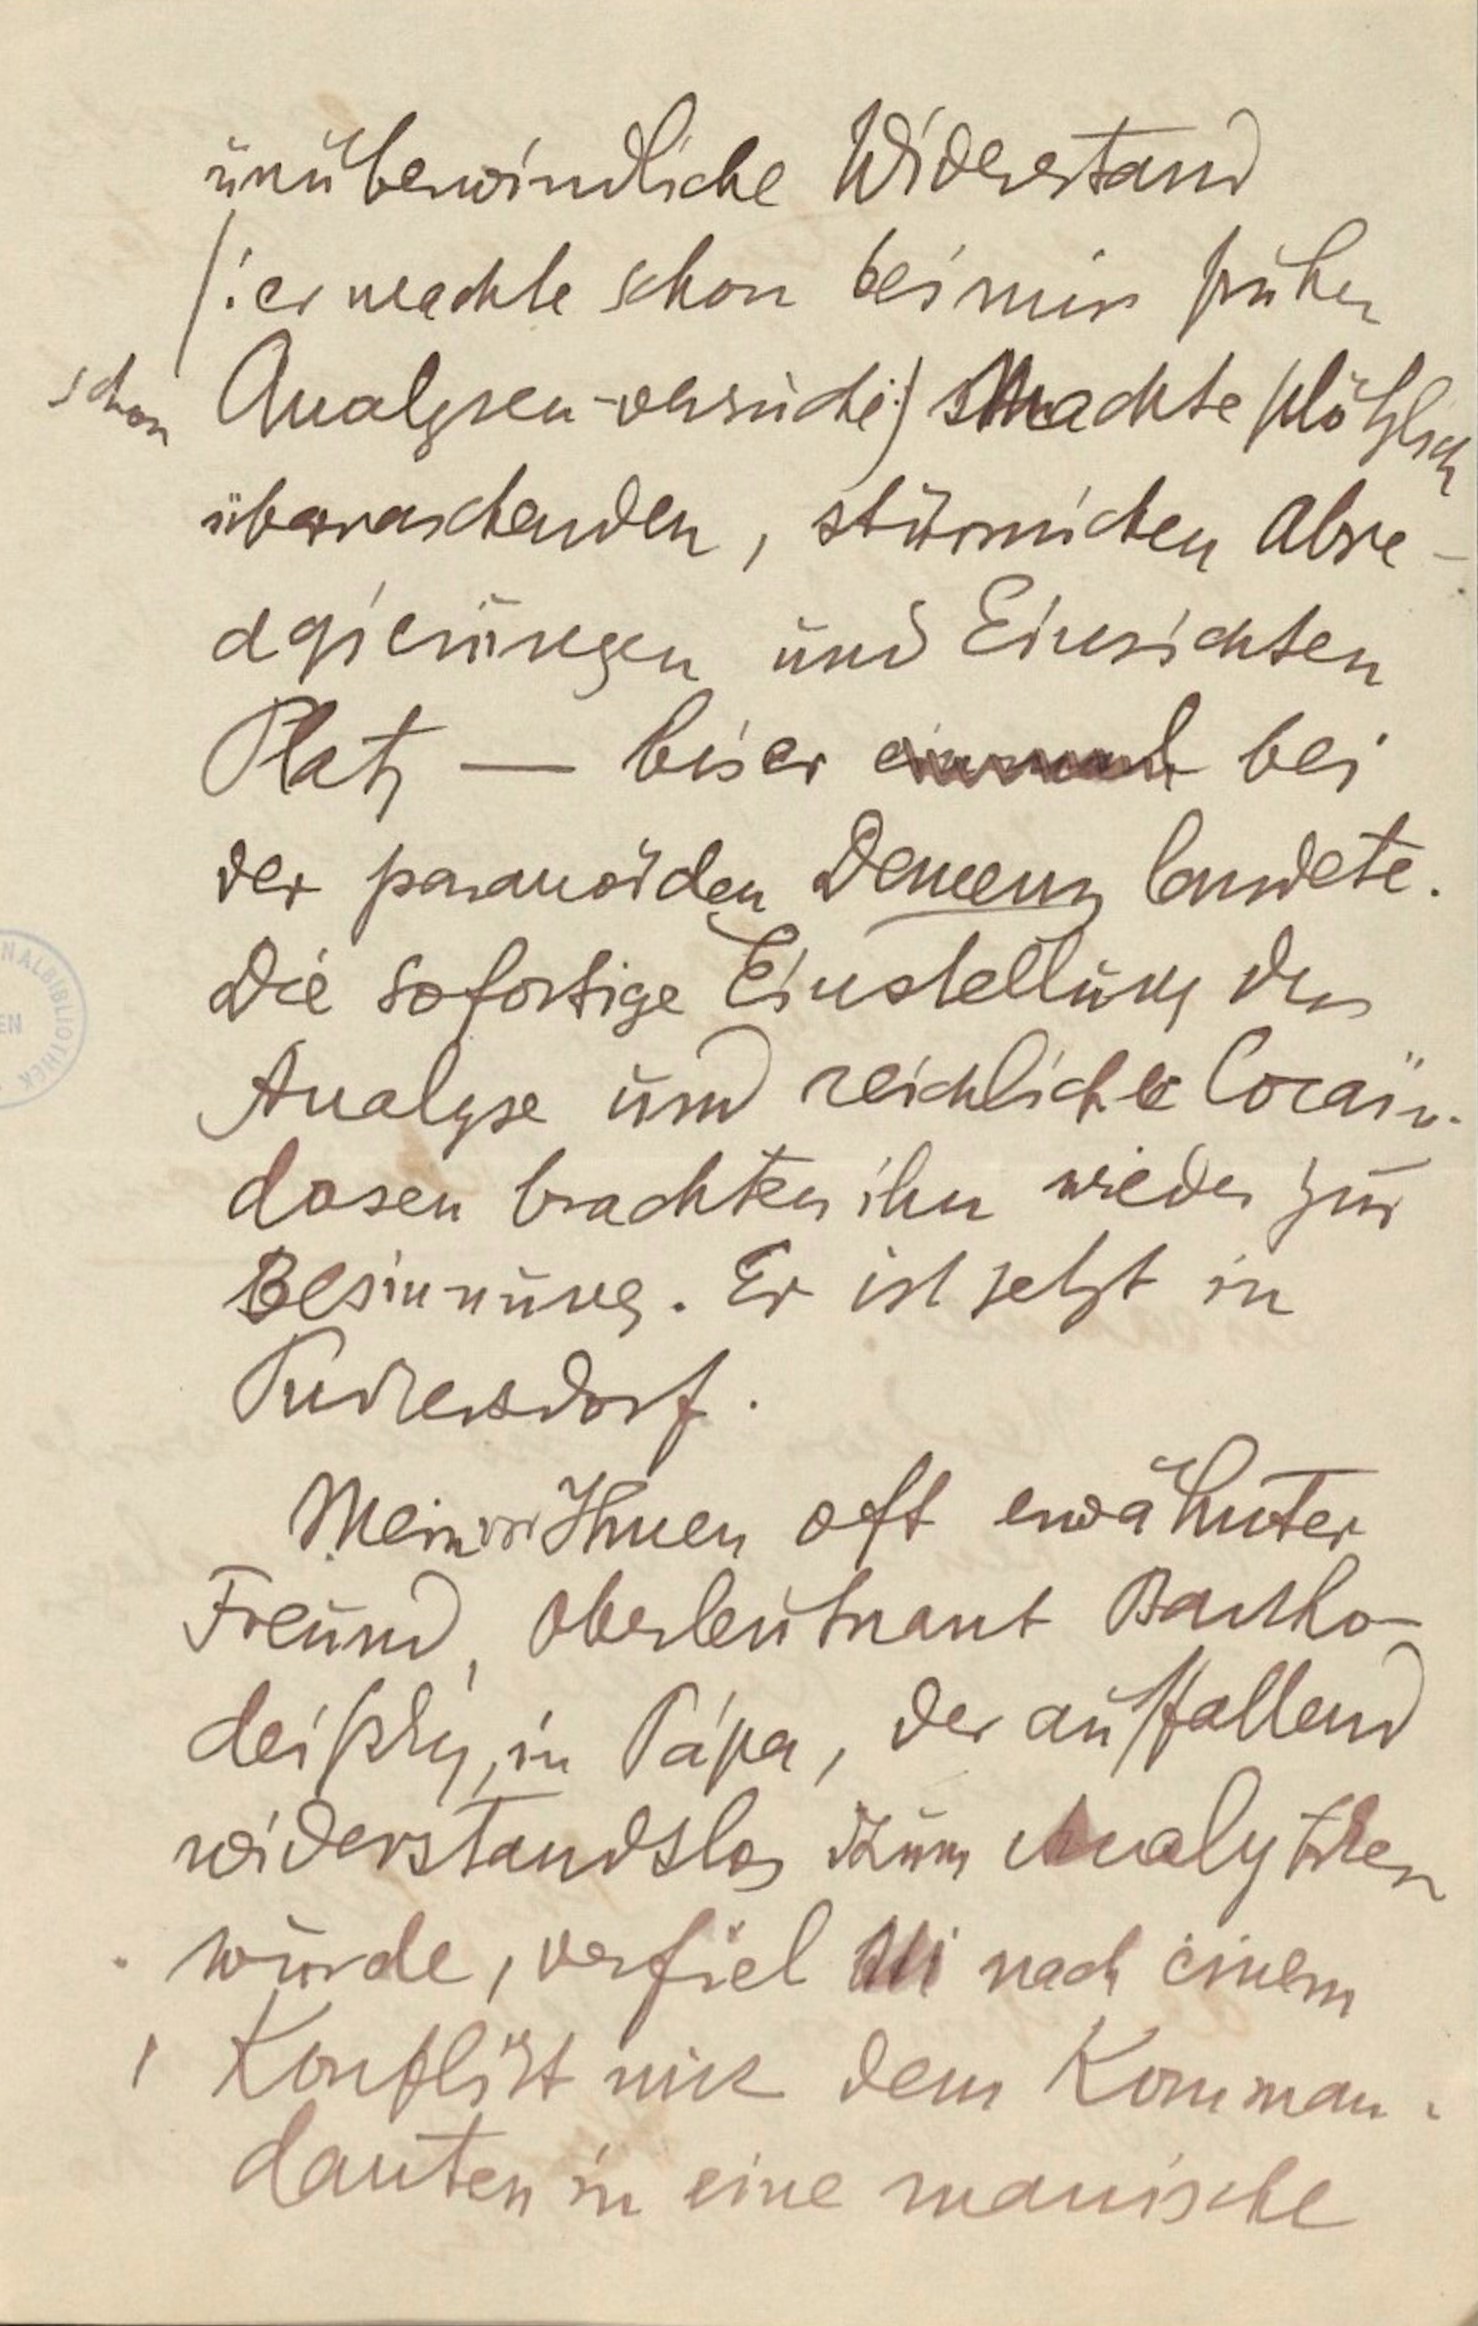 unüberwindliche Widerstand
/: er machte schon bei mir früher
schon Analysen-versuche :/ machte plötzlich
überraschenden, stürmichen Abre-
agierungen und Einsichten
Platz — bis er einmal bei
der paranoiden Demenz landete.
Die sofortige Einstellung der
Analyse und reichliche Cocaïn-
dosen brachten ihn wieder zur
Besinnung. Er ist jetzt in
Purkersdorf.
Mein Ihnen oft erwähnter
Freund, Oberleutnant Bartho-
deißky, in Pápa, der auffallend
widerstandslos zum Analytiker
wurde, verfiel nach einem
Konflikt mit dem Komman-
danten in eine manische
NALBIBLIOTHEK
EN